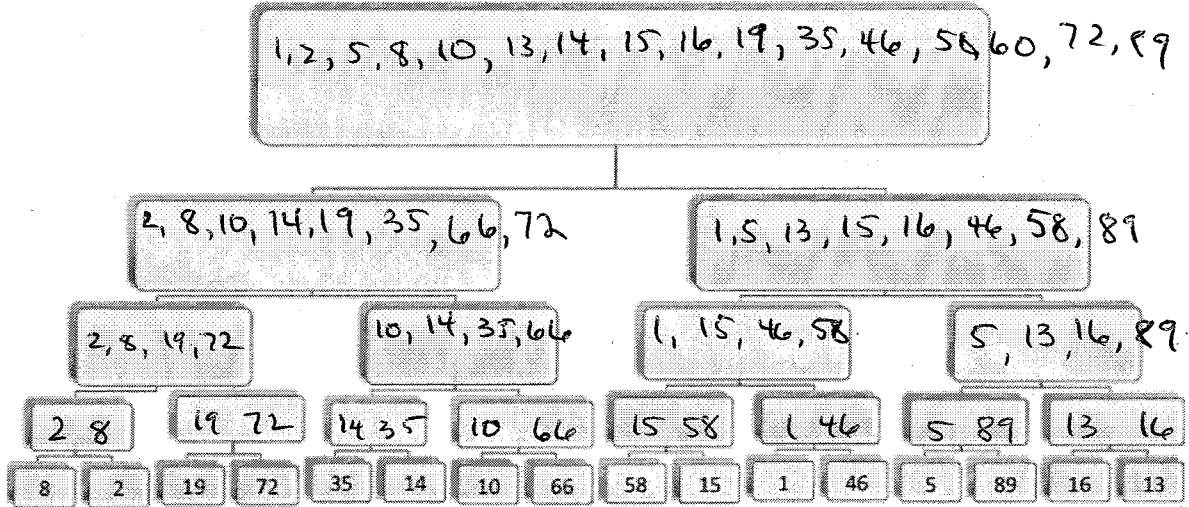 1, 2, 5, 8, 10, 13, 14, 15, 16, 19, 35, 46, 58, 60, 72, 89
2, 8, 10, 14, 19, 35, 66, 72
1, 5, 13, 15, 16, 46, 58, 89
2, 8, 19, 72
10, 14, 35, 66
1, 15, 46, 58
5, 13, 16, 89
2 8
19 72
14 35
10 66
15 58
1 46
5 89
13 16
8 2 19 72 35 14 10 66 58 15 1 46 5 89 16 13